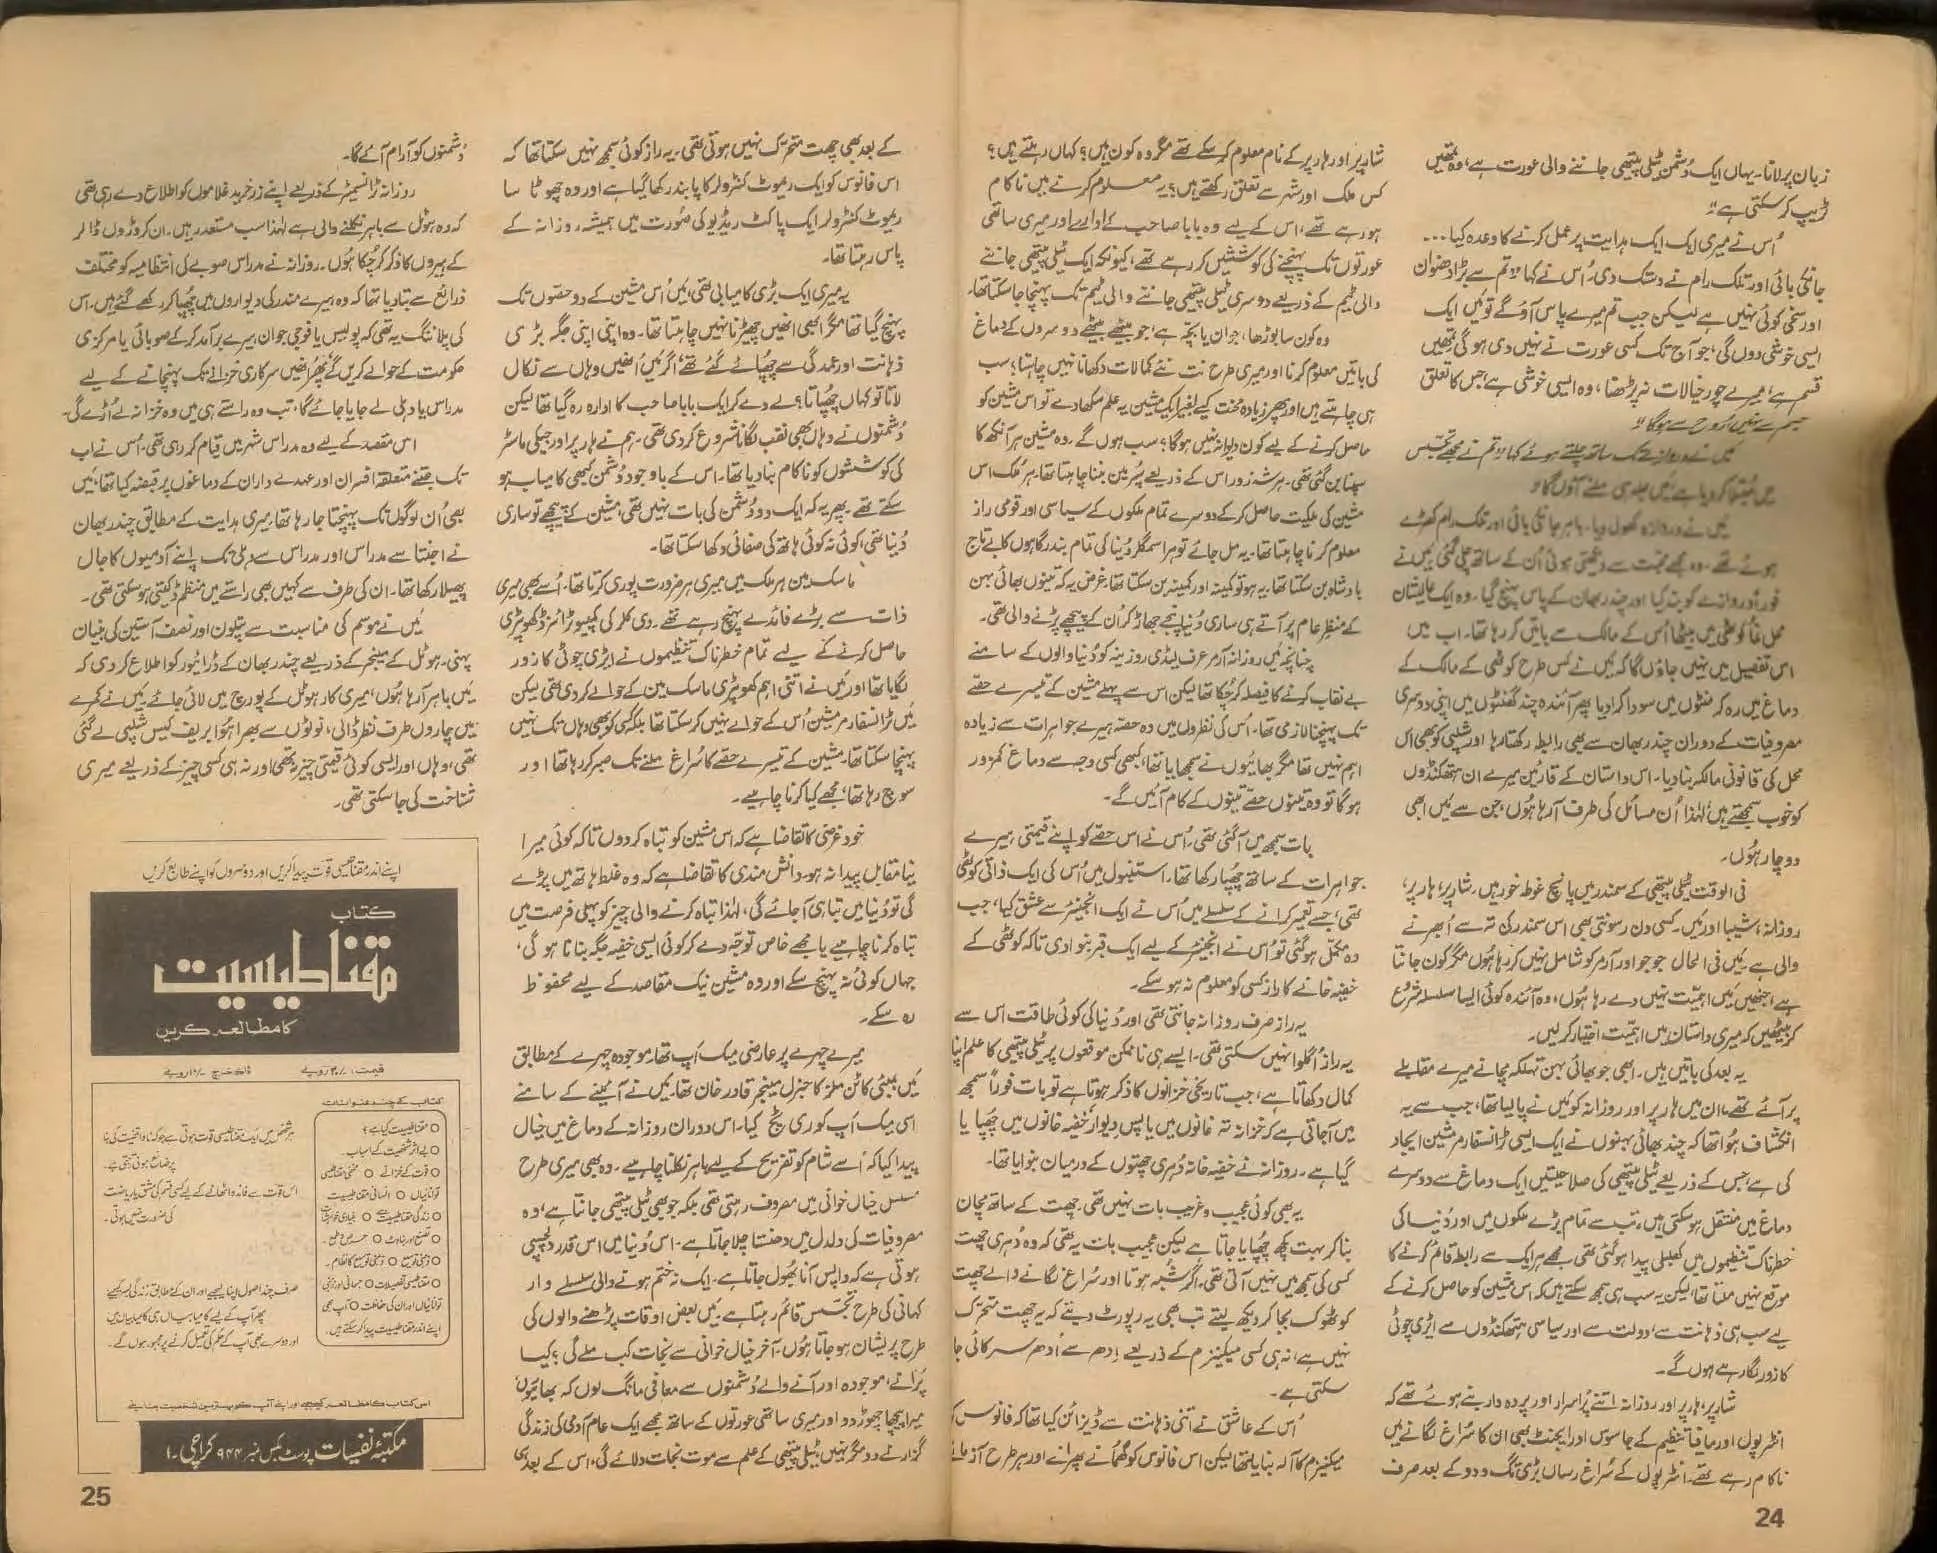 زبان پر لانا۔ یہاں ایک دُشمن ٹیلی پیتھی جاننے والی عورت ہے، وہ تمھیں
ٹریپ کر سکتی ہے۔"
اُس نے میری ایک ایک ہدایت پر عمل کرنے کا وعدہ کیا ...
جانکی بائی اور تلک رام نے دستک دی۔ اُس نے کہا "تم سے بڑا دھنوان
اور سخی کوئی نہیں ہے لیکن جب تم میرے پاس آؤ گے تو میں ایک
ایسی خوشی دوں گی، جو آج تک کسی عورت نے نہیں دی ہو گی تمھیں
قسم ہے، میرے چور خیالات نہ پڑھنا، وہ ایسی خوشی ہے، جس کا تعلق
جسم سے نہیں رُوح سے ہوگا"
میں نے دروازے تک ساتھ چلتے ہوئے کہا "تم نے مجھے تجسّس
میں مُبتلا کر دیا ہے میں جلد ہی ملنے آؤں گا"
میں نے دروازہ کھول دیا۔ باہر جانکی بائی اور تلک رام کھڑے
ہوئے تھے۔ وہ مجھے محبّت سے دیکھتی ہوئی اُن کے ساتھ چلی گئی میں نے
فوراً دروازے کو بند کیا اور چندر بھان کے پاس پہنچ گیا۔ وہ ایک عالیشان
محل نما کوٹھی میں بیٹھا اُس کے مالک سے باتیں کر رہا تھا۔ اب میں
اس تفصیل میں نہیں جاؤں گا کہ میں نے کس طرح کوٹھی کے مالک کے
دماغ میں رہ کر منٹوں میں سودا کرا دیا پھر آئندہ چند گھنٹوں میں اپنی دوسری
مصروفیات کے دوران چندر بھان سے بھی رابطہ رکھتا رہا اور شلپی کو بھی اس
محل کی قانونی مالکہ بنا دیا۔ اس داستان کے قارئین میرے ان ہتھکنڈوں
کو خوب سمجھتے ہیں لہٰذا اُن مسائل کی طرف آ رہا ہُوں، جن سے میں ابھی
دو چار ہُوں۔
فی الوقت ٹیلی پیتھی کے سمندر میں پانچ غوطہ خور ہیں۔ شارپر، ہارپر،
روزانہ، شیبا اور میں۔ کسی دن رسونتی بھی اس سمندر کی تہ سے اُبھرنے
والی ہے میں فی الحال جوجو اور آرمر کو شامل نہیں کر رہا ہوں مگر کون جانتا
ہے، جنھیں میں اہمیّت نہیں دے رہا ہُوں، وہ آئندہ کوئی ایسا سلسلہ شروع
کر بیٹھیں کہ میری داستان میں اہمیّت اختیار کر لیں۔
یہ بعد کی باتیں ہیں۔ ابھی جو بھائی بہن تہلکہ مچانے میرے مقابلے
پر آئے تھے، ان میں ہارپر اور روزانہ کو میں نے پا لیا تھا، جب سے یہ
انکشاف ہُوا تھا کہ چند بھائی بہنوں نے ایک ایسی ٹرانسفارمر مشین ایجاد
کی ہے، جس کے ذریعے ٹیلی پیتھی کی صلاحیتیں ایک دماغ سے دوسرے
دماغ میں منتقل ہو سکتی ہیں، تب سے تمام بڑے ملکوں میں اور دُنیا کی
خطرناک تنظیموں میں کھلبلی پیدا ہو گئی تھی۔ مجھے ہر ایک سے رابطہ قائم کرنے کا
موقع نہیں ملتا تھا، لیکن یہ سب ہی سمجھ سکتے ہیں کہ اس مشین کو حاصل کرنے کے
لیے سب ہی ذہانت سے، دولت سے اور سیاسی ہتھکنڈوں سے ایڑی چوٹی
کا زور لگا رہے ہوں گے۔
شارپر، ہارپر اور روزانہ اتنے پُراسرار اور پردہ دار بنے ہوئے تھے کہ
انٹرپول اور مافیا تنظیم کے جاسوس اور ایجنٹ بھی ان کا سُراغ لگانے میں
ناکام رہے تھے۔ انٹرپول کے سُراغ رساں بڑی تگ و دو کے بعد صرف
شارپر اور ہارپر کے نام معلوم کر سکے تھے مگر وہ کون ہیں؟ کہاں رہتے ہیں؟
کس ملک اور شہر سے تعلق رکھتے ہیں؟ یہ معلوم کرنے میں ناکام
ہو رہے تھے، اس کے لیے وہ بابا صاحب کے ادارے اور میری ساتھی
عورتوں تک پہنچنے کی کوششیں کر رہے تھے، کیونکہ ایک ٹیلی پیتھی جاننے
والی ٹیم کے ذریعے دوسری ٹیلی پیتھی جاننے والی ٹیم تک پہنچا جا سکتا تھا۔
وہ کون سا بوڑھا، جوان یا بچّہ ہے، جو بیٹھے بیٹھے دوسروں کے دماغ
کی باتیں معلوم کرنا اور میری طرح نت نئے کمالات دکھانا نہیں چاہتا، سب
ہی چاہتے ہیں اور پھر زیادہ محنت کیے بغیر ایک مشین یہ علم سکھا دے تو اس مشین کو
حاصل کرنے کے لیے کون دیوانہ نہیں ہوگا؟ سب ہوں گے۔ وہ مشین ہر آنکھ کا
سپنا بن گئی تھی۔ ہر شہ زور اس کے ذریعے سُپر مین بننا چاہتا تھا۔ ہر ملک اس
مشین کی ملکیت حاصل کر کے دوسرے تمام ملکوں کے سیاسی اور قومی راز
معلوم کرنا چاہتا تھا۔ یہ مل جائے تو ہر اسمگلر دُنیا کی تمام بندرگاہوں کا بے تاج
بادشاہ بن سکتا تھا۔ یہ ہو تو کمینہ اور کمینہ بن سکتا تھا۔ غرض یہ کہ تینوں بھائی بہن
کے منظرِ عام پر آتے ہی ساری دُنیا پنجے جھاڑ کر ان کے پیچھے پڑنے والی تھی۔
چنانچہ میں روزانہ آرمر عرف لیڈی روزینہ کو دُنیا والوں کے سامنے
بے نقاب کرنے کا فیصلہ کر چُکا تھا لیکن اس سے پہلے مشین کے تیسرے حصّے
تک پہنچنا لازمی تھا۔ اُس کی نظروں میں وہ حصّہ ہیرے جواہرات سے زیادہ
اہم نہیں تھا مگر بھائیوں نے سمجھایا تھا، کبھی کسی وجہ سے دماغ کمزور
ہو گا تو وہ تینوں حصّے تینوں کے کام آئیں گے۔
بات سمجھ میں آ گئی تھی۔ اُس نے اس حصّے کو اپنے قیمتی ہیرے
جواہرات کے ساتھ چھپا رکھا تھا۔ استنبول میں اُس کی ایک ذاتی کوٹھی
تھی، جسے تعمیر کرانے کے سلسلے میں اُس نے ایک انجنیئر سے عشق کیا، جب
وہ مکمّل ہو گئی تو اُس نے انجنیئر کے لیے ایک قبر بنوا دی تاکہ کوٹھی کے
خفیہ خانے کا راز کسی کو معلوم نہ ہو سکے۔
یہ راز صرف روزانہ جانتی تھی اور دُنیا کی کوئی طاقت اس سے
یہ راز اُگلوا نہیں سکتی تھی۔ ایسے ہی ناممکن موقعوں پر ٹیلی پیتھی کا علم اپنا
کمال دکھاتا ہے، جب تاریخی خزانوں کا ذکر ہوتا ہے تو بات فوراً سمجھ
میں آ جاتی ہے کہ خزانہ تہ خانوں میں یا پسِ دیوار خُفیہ خانوں میں چُھپا یا
گیا ہے۔ روزانہ نے خفیہ خانہ دُہری چھتوں کے درمیان بنوایا تھا۔
یہ بھی کوئی عجیب و غریب بات نہیں تھی۔ چھت کے ساتھ مچان
بنا کر بہت کچھ چُھپایا جاتا ہے لیکن عجیب بات یہ تھی کہ وہ دُہری چھت
کسی کی سمجھ میں نہیں آتی تھی۔ اگر شُبہ ہوتا اور سُراغ لگانے والے چھت
کو ٹھوک بجا کر دیکھ لیتے تب بھی یہ رپورٹ دیتے کہ یہ چھت متحرّک
نہیں ہے، نہ ہی کسی میکینزم کے ذریعے اِدھر سے اُدھر سرکائی جا
سکتی ہے۔
اُس کے عاشق نے اتنی ذہانت سے ڈیزائن کیا تھا کہ فانوس کو
میکینزم کا آلہ بنایا تھا لیکن اس فانوس کو گھمانے پھرانے اور ہر طرح آزمانے
کے بعد بھی چھت متحرّک نہیں ہوتی تھی۔ یہ راز کوئی سمجھ نہیں سکتا تھا کہ
اس فانوس کو ایک ریموٹ کنٹرولر کا پابند رکھا گیا ہے اور وہ چھوٹا سا
ریموٹ کنٹرولر ایک پاکٹ ریڈیو کی صُورت میں ہمیشہ روزانہ کے
پاس رہتا تھا۔
یہ میری ایک بڑی کامیابی تھی، میں اُس مشین کے دو حصّوں تک
پہنچ گیا تھا مگر ابھی انھیں چھیڑنا نہیں چاہتا تھا۔ وہ اپنی اپنی جگہ بڑی
ذہانت اور عمدگی سے چُھپائے گئے تھے، اگر میں انھیں وہاں سے نکال
لاتا تو کہاں چھپاتا؟ لے دے کر ایک بابا صاحب کا ادارہ رہ گیا تھا لیکن
دُشمنوں نے وہاں بھی نقب لگانا شروع کر دی تھی۔ ہم نے ہارپر اور جیکی ماسٹر
کی کوششوں کو ناکام بنا دیا تھا۔ اس کے باوجود دُشمن کبھی کامیاب ہو
سکتے تھے۔ پھر یہ کہ ایک دو دُشمن کی بات نہیں تھی، مشین کے پیچھے تو ساری
دُنیا تھی، کوئی نہ کوئی ہاتھ کی صفائی دکھا سکتا تھا۔
ماسک مین ہر ملک میں میری ہر ضرورت پوری کرتا تھا۔ اُسے بھی میری
ذات سے بڑے فائدے پہنچ رہے تھے۔ دی کلر کی کمپیوٹرائزڈ کھوپڑی
حاصل کرنے کے لیے تمام خطرناک تنظیموں نے ایڑی چوٹی کا زور
لگایا تھا اور میں نے اتنی اہم کھوپڑی ماسک مین کے حوالے کر دی تھی لیکن
میں ٹرانسفارمر مشین اُس کے حوالے نہیں کر سکتا تھا بلکہ کسی کو بھی وہاں تک نہیں
پہنچا سکتا تھا۔ مشین کے تیسرے حصّے کا سُراغ ملنے تک صبر کر رہا تھا اور
سوچ رہا تھا، مجھے کیا کرنا چاہیے۔
خود غرضی کا تقاضا ہے کہ اس مشین کو تباہ کر دوں تاکہ کوئی میرا
نیا مقابل پیدا نہ ہو۔ دانش مندی کا تقاضا ہے کہ وہ غلط ہاتھ میں پڑے
گی تو دُنیا میں تباہی آ جائے گی، لہٰذا تباہ کرنے والی چیز کو پہلی فرصت میں
تباہ کرنا چاہیے یا مجھے خاص توجّہ دے کر کوئی ایسی خفیہ جگہ بنانا ہو گی،
جہاں کوئی نہ پہنچ سکے اور وہ مشین نیک مقاصد کے لیے محفوظ
رہ سکے۔
میرے چہرے پر عارضی میک اَپ تھا، موجودہ چہرے کے مطابق
میں بمبئی کاٹن ملز کا جنرل مینیجر قادر خان تھا۔ میں نے آئینے کے سامنے
اسی میک اَپ کو ری ٹچ کیا۔ اس دوران روزانہ کے دماغ میں خیال
پیدا کیا کہ اُسے شام کو تفریح کے لیے باہر نکلنا چاہیے۔ وہ بھی میری طرح
مسلسل خیال خوانی میں مصروف رہتی تھی بلکہ جو بھی ٹیلی پیتھی جانتا ہے، وہ
مصروفیات کی دلدل میں دھنستا چلا جاتا ہے۔ اس دُنیا میں اس قدر دلچسپی
ہوتی ہے کہ واپس آنا بُھول جاتا ہے۔ ایک نہ ختم ہونے والی سلسلے وار
کہانی کی طرح تجسّس قائم رہتا ہے میں بعض اوقات پڑھنے والوں کی
طرح پریشان ہو جاتا ہُوں۔ آخر خیال خوانی سے نجات کب ملے گی؟ کیا
پُرانے، موجودہ اور آنے والے دُشمنوں سے معافی مانگ لوں کہ بھائیوں
میرا پیچھا چھوڑ دو اور میری ساتھی عورتوں کے ساتھ مجھے ایک عام آدمی کی زندگی
گزارنے دو مگر نہیں، ٹیلی پیتھی کے علم سے موت نجات دلائے گی، اس کے بعد ہی
دُشمنوں کو آرام آئے گا۔
روزانہ ٹرانسمیٹر کے ذریعے اپنے زر خرید غلاموں کو اطلاع دے رہی تھی
کہ وہ ہوٹل سے باہر نکلنے والی ہے لہٰذا سب مستعد رہیں۔ ان کروڑوں ڈالر
کے ہیروں کا ذکر کر چُکا ہُوں۔ روزانہ نے مدراس صوبے کی انتظامیہ کو مختلف
ذرائع سے بتا دیا تھا کہ وہ ہیرے مندر کی دیواروں میں چُھپا کر رکھے گئے ہیں۔ اس
کی پلاننگ یہ تھی کہ پولیس یا فوجی جوان ہیرے برآمد کر کے صوبائی یا مرکزی
حکومت کے حوالے کریں گے، پھر اُنھیں سرکاری خزانے تک پہنچانے کے لیے
مدراس یا دہلی لے جایا جائے گا، تب وہ راستے ہی میں وہ خزانہ لے اُڑے گی۔
اس مقصد کے لیے وہ مدراس شہر میں قیام کر رہی تھی۔ اُس نے اب
تک جتنے متعلقہ افسران اور عہدے داران کے دماغوں پر قبضہ کیا تھا، میں
بھی اُن لوگوں تک پہنچتا جا رہا تھا۔ میری ہدایت کے مطابق چندر بھان
نے اجنتا سے مدراس اور مدراس سے دہلی تک اپنے آدمیوں کا جال
پھیلا رکھا تھا۔ ان کی طرف سے کہیں بھی راستے میں منظّم ڈکیتی ہو سکتی تھی۔
میں نے موسم کی مناسبت سے پتلون اور نصف آستین کی بنیان
پہنی۔ ہوٹل کے مینجر کے ذریعے چندر بھان کے ڈرائیور کو اطلاع کر دی کہ
میں باہر آ رہا ہُوں، میری کار ہوٹل کے پورچ میں لائی جائے میں نے کمرے
میں چاروں طرف نظر ڈالی، نوٹوں سے بھرا ہُوا بریف کیس شلپی لے گئی
تھی، وہاں اور ایسی کوئی قیمتی چیز نہ تھی اور نہ ہی کسی چیز کے ذریعے میری
شناخت کی جا سکتی تھی۔
اپنے اندر مقناطیسی قوت پیدا کریں اور دوسروں کو اپنے طابع کریں
کتاب
مقناطیسیت
کا مطالعہ کریں
قیمت: ۲۰/- روپے ڈاک خرچ ۱۰/- روپے
کتاب کے چند عنوانات
○ مقناطیسیت کیا ہے؟
○ بے اثر شخصیت کے اسباب
○ قوت کے خزانے ○ منفی مقناطیسی
توانائیاں ○ انسانی مقناطیسیت
○ زندگی مقناطیسیت ہے ○ بنیادی خواہشات
○ تصنّع اور بناوٹ ○ حرص و طمع۔
○ ذہنی توسیع ○ ذہنی توسیع کا نظام۔
○ مقناطیسی تفصیلات ○ جسمانی اور ذہنی
توانائیاں اور ان کی حفاظت ○ آپ بھی
اپنے اندر مقناطیسیت پیدا کر سکتے ہیں۔
ہر شخص میں ایک مقناطیسی قوت ہوتی ہے جو کہ ناواقفیت کی بنا
پر ضائع ہوتی رہتی ہے۔
اس قوت سے فائدہ اٹھانے کے لیے کسی قسم کی مشق یا ریاضت
کی ضرورت نہیں ہوتی۔
صرف چند اصول اپنا لیجیے اور ان کے مطابق زندگی بسر کیجیے
پھر آپ کے لیے کامیابیاں ہی کامیابیاں ہیں
اور دوسرے بھی آپ کے حکم کی تعمیل کرنے پر مجبور ہوں گے۔
اس کتاب کا مطالعہ کیجیے اور اپنے آپ کو بہترین شخصیت بنائیے
مکتبۂ نفسیات پوسٹ بکس نمبر ۹۴۴ کراچی۔۱
25
24